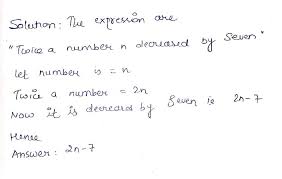 Solution: The expression are
"Twice a number n decreased by Seven"
let number is = n
Twice a number = 2n
Now it is decreased by Seven ie 2n-7
Hence
Answer: 2n-7